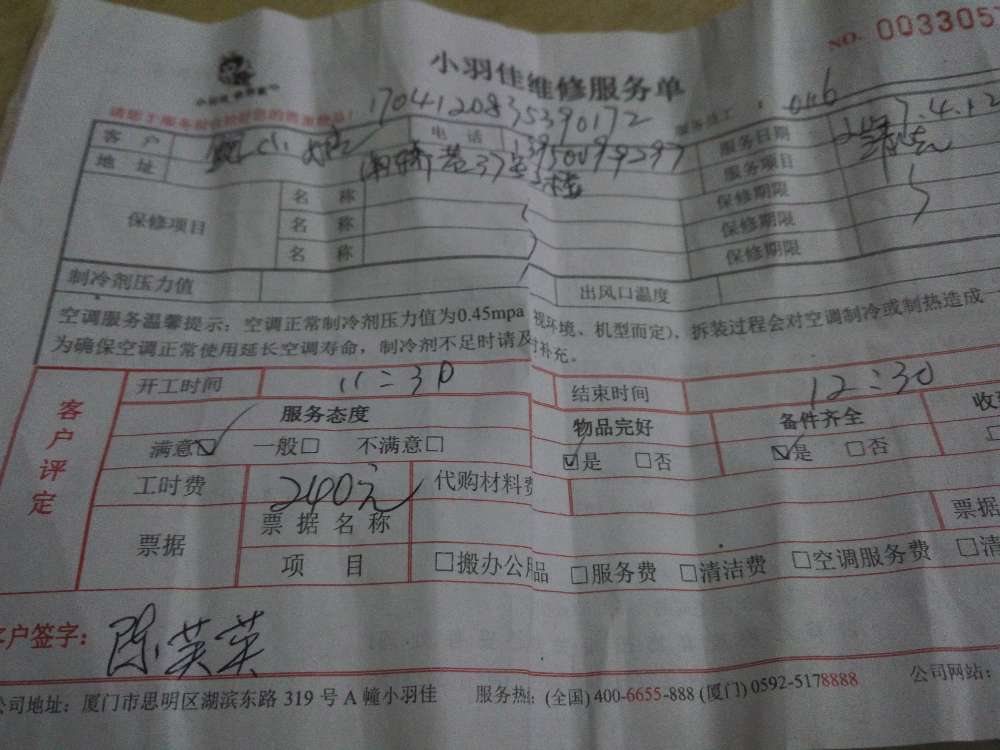 小羽佳维修服务单
NO. 003305
1704120835390172
服务员工: 046
客户 电话 服务日期 2017.4.12
地址 37号 楼 服务项目
保修项目 名称 保修期限
名称 保修期限
名称 保修期限
制冷剂压力值 出风口温度
空调服务温馨提示：空调正常制冷剂压力值为0.45mpa 视环境、机型而定)，拆装过程会对空调制冷或制热造成
为确保空调正常使用延长空调寿命，制冷剂不足时请及时补充。
客户评定
开工时间 11:30 结束时间 12:30
服务态度 物品完好 备件齐全
满意☑ 一般□ 不满意□ ☑是 □否 ☑是 □否
工时费 240元 代购材料费
票据 票据名称 票据
项目 □搬办公用品 □服务费 □清洁费 □空调服务费 □清
客户签字: 陈英英
公司地址: 厦门市思明区湖滨东路 319 号 A 幢小羽佳 服务热线: (全国) 400-6655-888 (厦门) 0592-5178888 公司网站: